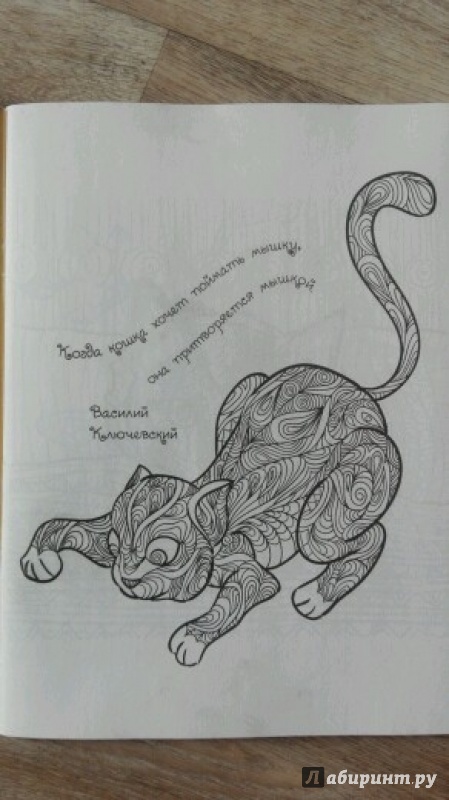 Когда кошка хочет поймать мышку,
она притворяется мышкой
Василий
Ключевский
Лабиринт.ру